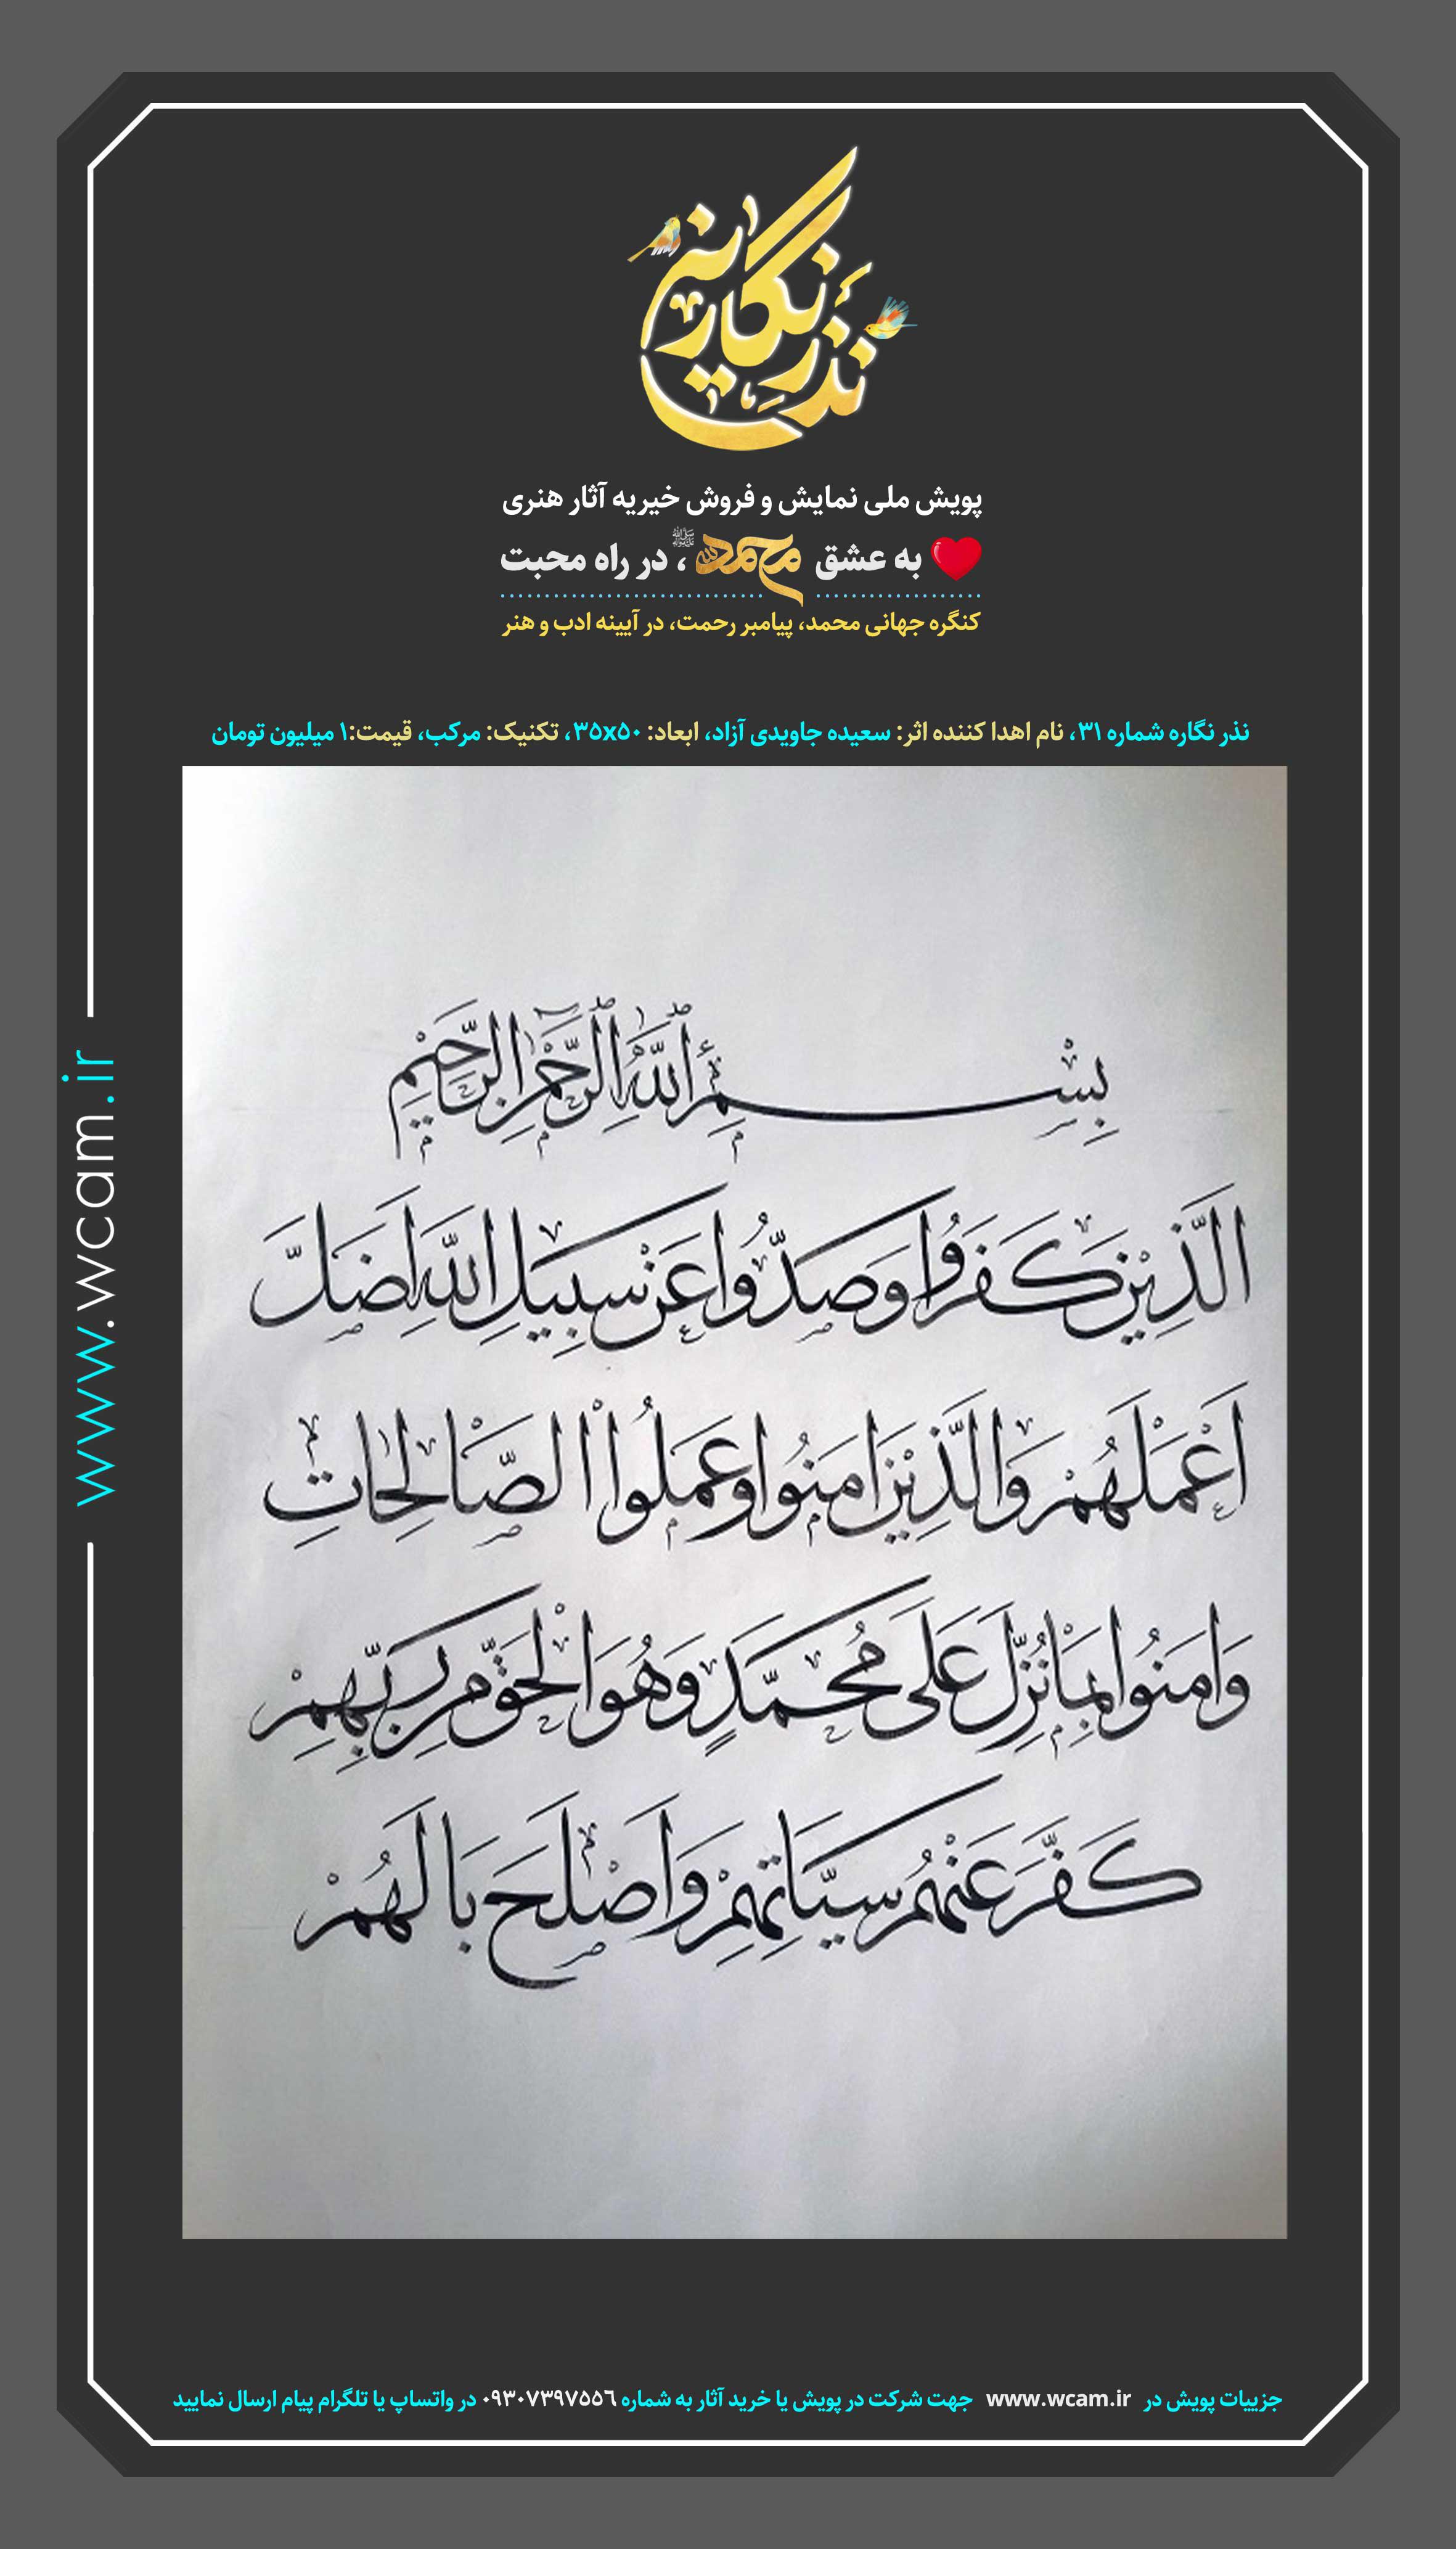 نذر نگارینه
پویش ملی نمایش و فروش خیریه آثار هنری
به عشق محمد ﷺ، در راه محبت
کنگره جهانی محمد، پیامبر رحمت، در آیینه ادب و هنر
نذر نگاره شماره ۳۱، نام اهدا کننده اثر: سعیده جاویدی آزاد، ابعاد: ۳۵x۵۰، تکنیک: مرکب، قیمت:۱ میلیون تومان
بِسْمِ ٱللَّهِ ٱلرَّحْمٰنِ الرَّحِيْمِ
الَّذِيْنَ كَفَرُوا وَصَدُّوا عَنْ سَبِيلِ اللَّهِ اَضَلَّ
اَعْمَلَهُمْ وَالَّذِيْنَ امَنُوا وَعَمَلُوا الصَّالِحَاتِ
وَامَنُوا بِمَا نُزِّلَ عَلَى مُحَمَّدٍ وَهُوَ الْحَقُّ مِ رَبِّهِمْ
كَفَّرَ عَنْهُمْ سَيِّاتِهِمْ وَاَصْلَحَ بَالَهُمْ
www.wcam.ir
جزییات پویش در www.wcam.ir جهت شرکت در پویش یا خرید آثار به شماره ۰۹۳۰۷۳۹۷۵۵۶ در واتساپ یا تلگرام پیام ارسال نمایید